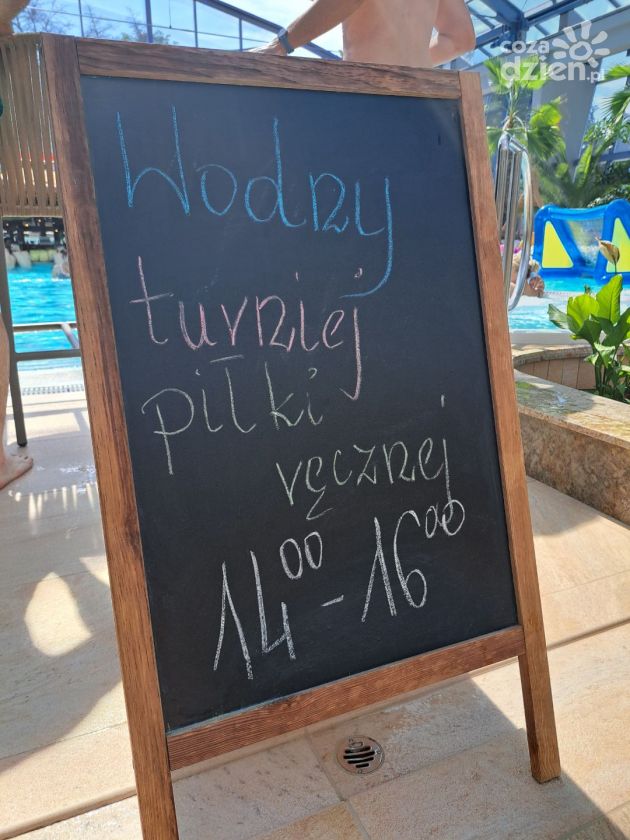 coza
dzien.pl
Wodny
turniej
piłki
ręcznej
14⁰⁰ - 16⁰⁰